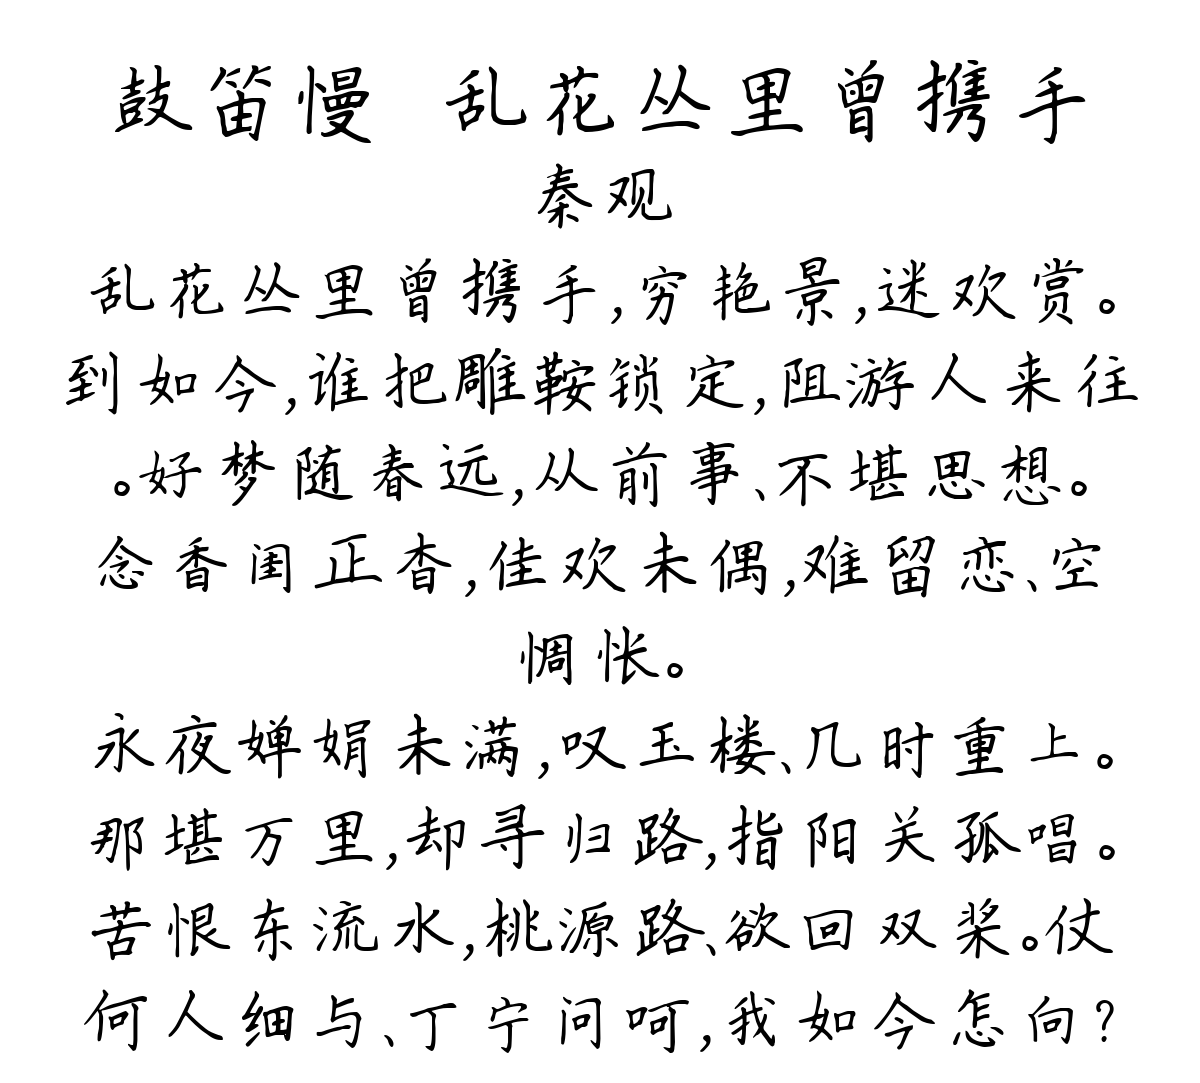 鼓笛慢 乱花丛里曾携手
秦观
乱花丛里曾携手,穷艳景,迷欢赏。
到如今,谁把雕鞍锁定,阻游人来往
。好梦随春远,从前事、不堪思想。
念香闺正杳,佳欢未偶,难留恋、空
惆怅。
永夜婵娟未满,叹玉楼、几时重上。
那堪万里,却寻归路,指阳关孤唱。
苦恨东流水,桃源路、欲回双桨。仗
何人细与、丁宁问呵,我如今怎向?